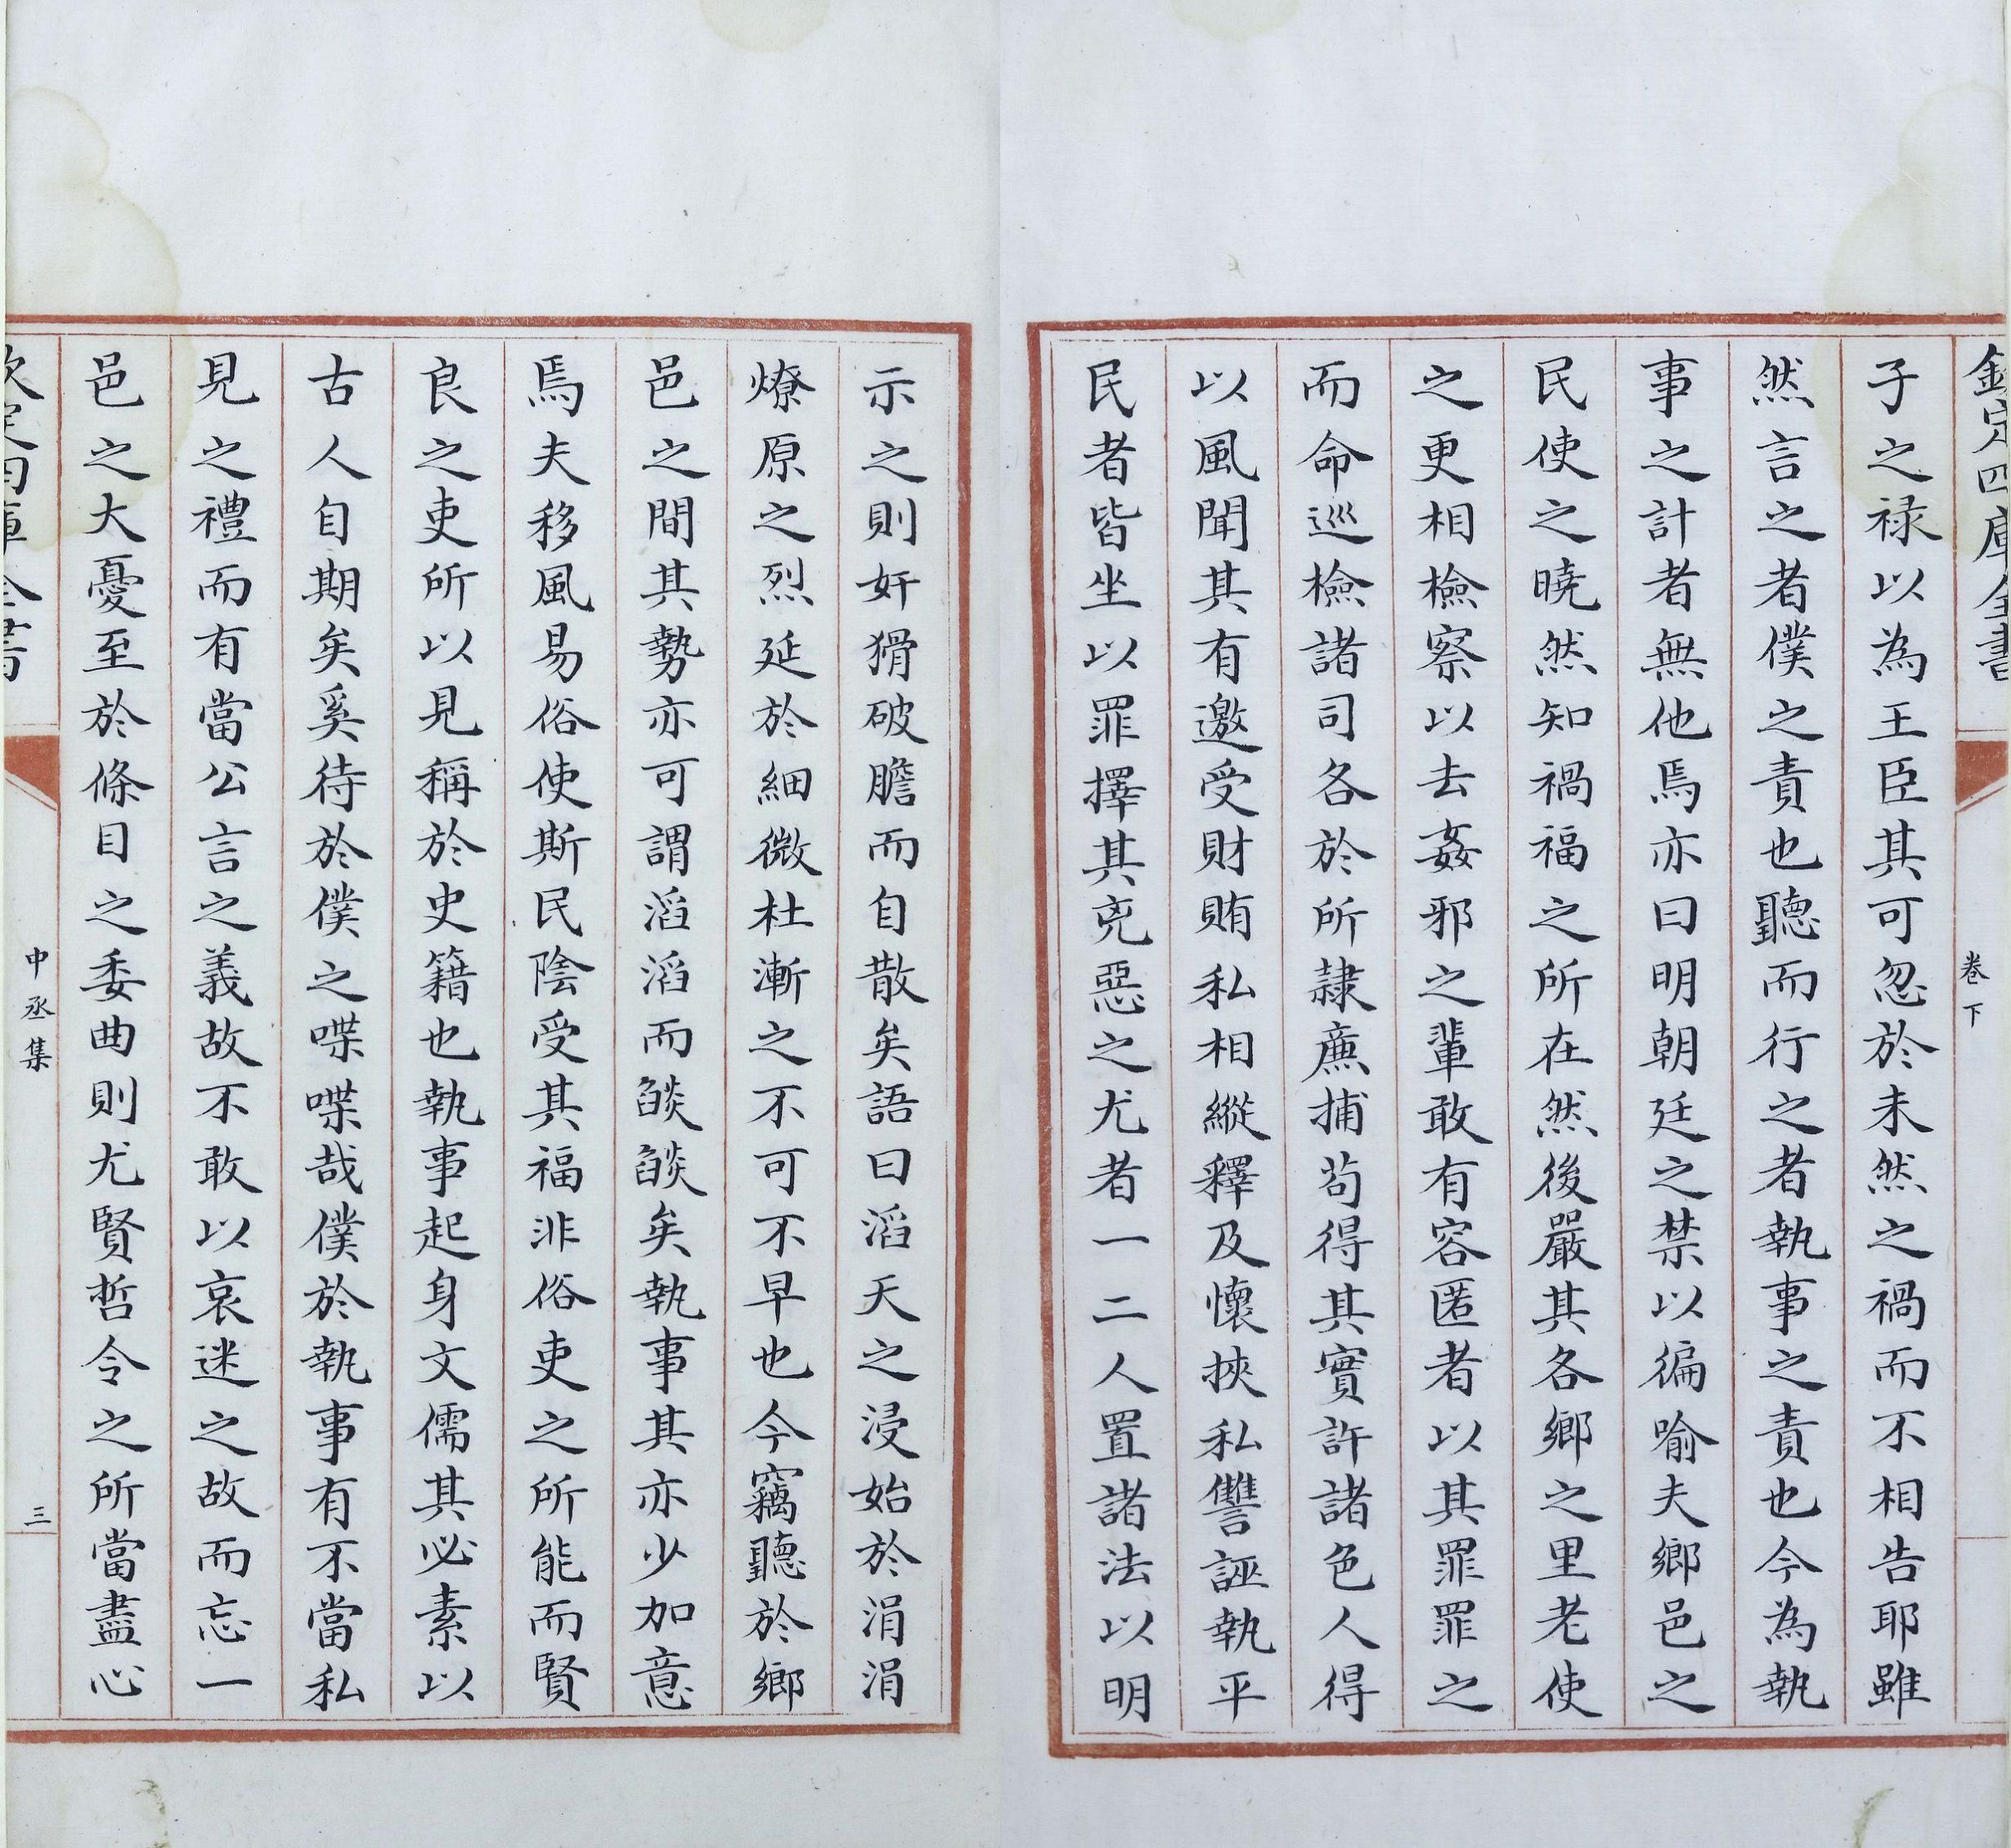 欽定四庫全書
卷下
子之禄以為王臣其可忽於未然之禍而不相告耶雖
然言之者僕之責也聽而行之者執事之責也今為執
事之計者無他焉亦曰明朝廷之禁以徧喻夫鄉邑之
民使之曉然知禍福之所在然後嚴其各鄉之里老使
之更相檢察以去姦邪之輩敢有容匿者以其罪罪之
而命巡檢諸司各於所隷廉捕茍得其實許諸色人得
以風聞其有邀受財賄私相縱釋及懷挾私讐誣執平
民者皆坐以罪擇其兇惡之尤者一二人置諸法以明
示之則奸猾破膽而自散矣語曰滔天之浸始於涓涓
燎原之烈延於細微杜漸之不可不早也今竊聽於鄉
邑之間其勢亦可謂滔滔而燄燄矣執事其亦少加意
焉夫移風易俗使斯民陰受其福非俗吏之所能而賢
良之吏所以見稱於史籍也執事起身文儒其必素以
古人自期矣奚待於僕之喋喋哉僕於執事有不當私
見之禮而有當公言之義故不敢以哀迷之故而忘一
邑之大憂至於條目之委曲則尤賢哲令之所當盡心
欽定四庫全書
中丞集
三